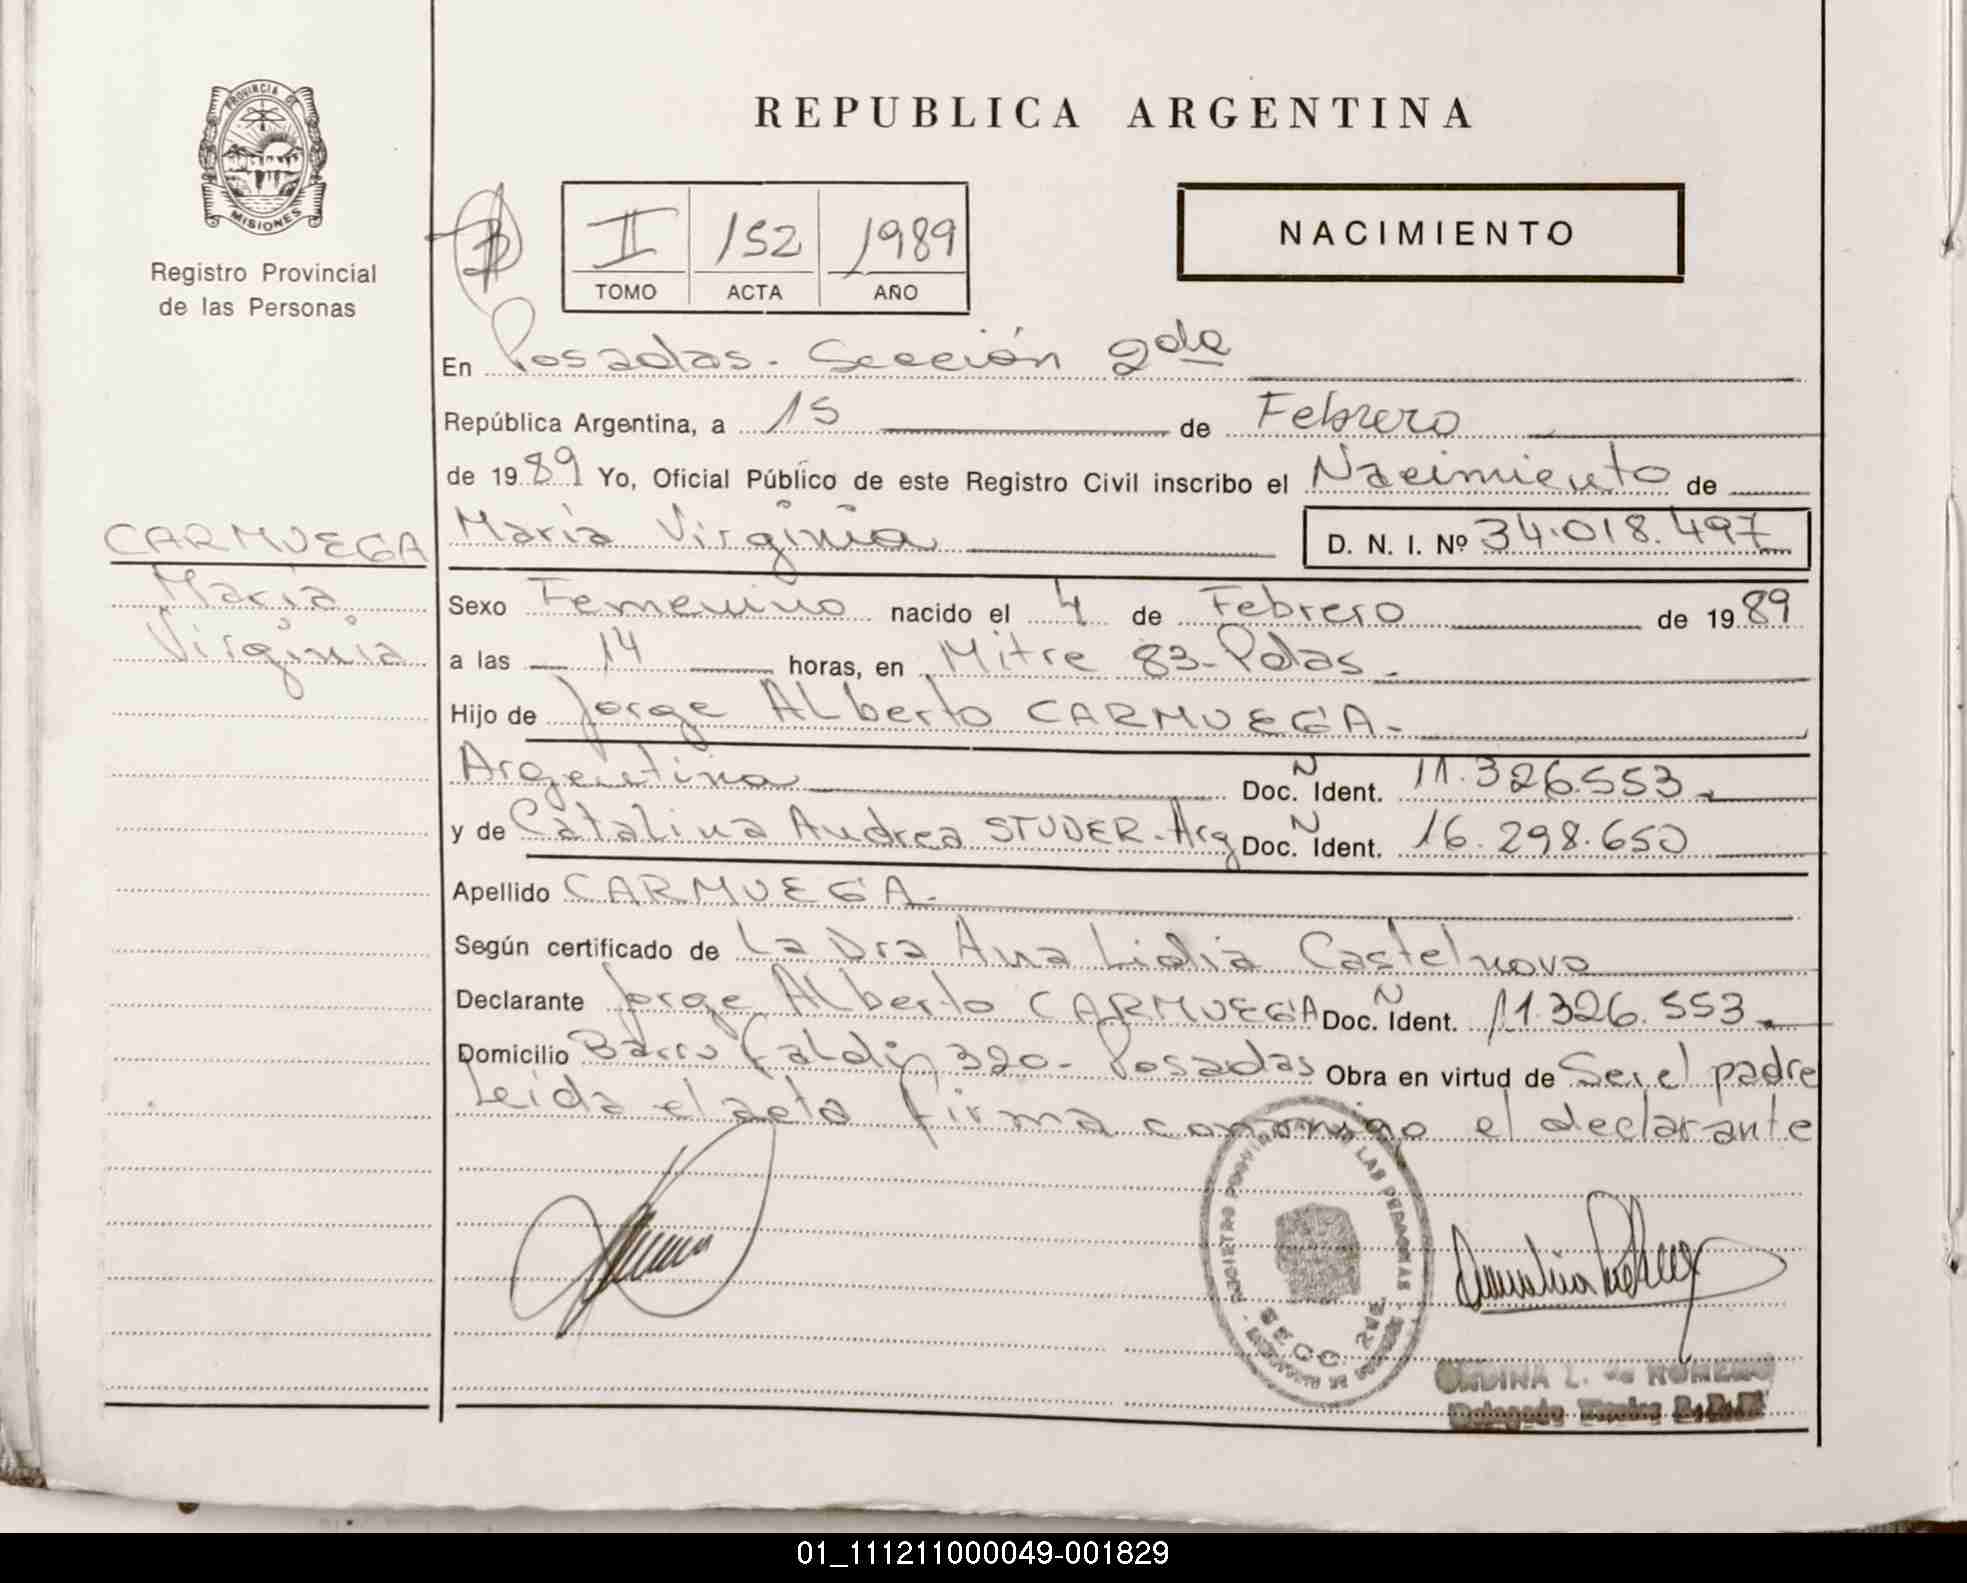 PROVINCIA DE
MISIONES
Registro Provincial
de las Personas
REPUBLICA ARGENTINA
II 152 1989
TOMO ACTA AÑO
NACIMIENTO
En Posadas. Sección 2da
República Argentina, a 15 de Febrero
de 1989 Yo, Oficial Público de este Registro Civil inscribo el Nacimiento de
CARMUEGA
María
Virginia
María Virginia D. N. I. Nº 34.018.497
Sexo Femenino nacido el 4 de Febrero de 1989
a las 14 horas, en Mitre 83-Pdas.
Hijo de Jorge Alberto CARMUEGA.
Argentina Doc. Ident. N 11.326.553
y de Catalina Andrea STUDER. Arg Doc. Ident. N 16.298.650
Apellido CARMUEGA.
Según certificado de La Dra Ana Lidia Castelnovo
Declarante Jorge Alberto CARMUEGA Doc. Ident. N 11.326.553
Domicilio 320- Posadas Obra en virtud de Ser el padre
Leída el acta firma conmigo el declarante
SECC. 2da
L. de ROMERO
01_111211000049-001829